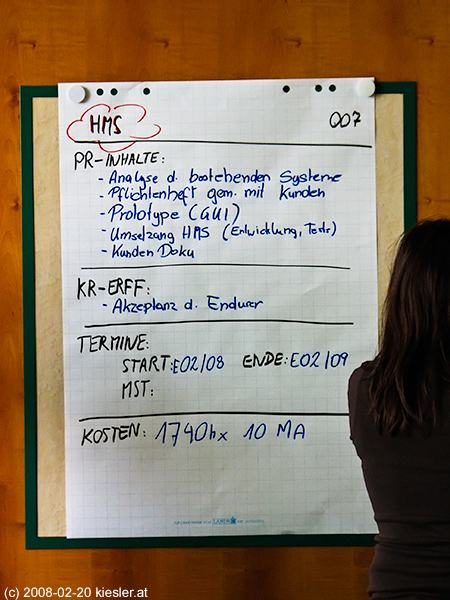 HMS
007
PR-INHALTE:
- Analyse d. bestehenden Systeme
- Pflichtenheft gem. mit Kunden
- Prototype (GUI)
- Umsetzang HMS (Entwicklung, Testr)
- Kunden Doku
KR-ERFF:
- Akzeptanz d. Enduser
TERMINE:
START: E02/08 ENDE: E02/09
MST:
KOSTEN: 1740h x 10 MA
(c) 2008-02-20 kiesler.at